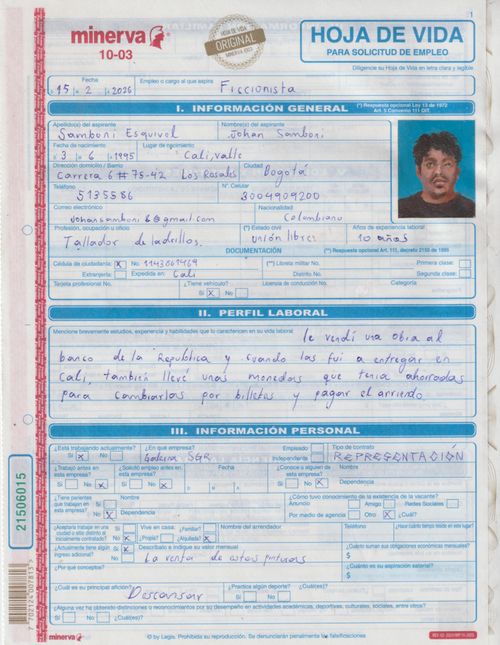 1
minerva
10-03
HOJA DE VIDA
ORIGINAL
MINERVA 10-03
HOJA DE VIDA
PARA SOLICITUD DE EMPLEO
Diligencie su Hoja de Vida en letra clara y legible
Fecha
Empleo o cargo al que aspira
15 2 2026 Ficcionista
I. INFORMACIÓN GENERAL
(*) Respuesta opcional Ley 13 de 1972
Art. 5 Convenio 111 OIT.
Apellido(s) del aspirante Nombre(s) del aspirante
Samboni Esquivel Johan Samboni
Fecha de nacimiento Lugar de nacimiento
3 6 1995 Cali, valle
Dirección domicilio / Barrio Ciudad
Carrera 6 # 75-42 Los Rosales Bogotá
Teléfono N°. Celular
5135586 3004909200
Correo electrónico Nacionalidad
johansamboni6@gmail.com Colombiano
Profesión, ocupación u oficio (*) Estado civil Años de experiencia laboral
Tallador de ladrillos. unión libre 10 años
DOCUMENTACIÓN (**) Respuesta opcional Art. 111, decreto 2150 de 1995
Cédula de ciudadanía: X No. 1143061469 (**) Libreta militar No. Primera clase:
Extranjería: Expedida en: Cali Distrito No. Segunda clase:
Tarjeta profesional No. ¿Tiene vehículo? Licencia de conducción No. Categoría
Sí X No
II. PERFIL LABORAL
Mencione brevemente estudios, experiencia y habilidades que lo caractericen en su vida laboral
le vendí una obra al
banco de la República y cuando las fui a entregar en
Cali, también llevé unas monedas que tenia ahorradas
para cambiarlas por billetes y pagar el arriendo.
III. INFORMACIÓN PERSONAL
¿Está trabajando actualmente? ¿En qué empresa? Empleado Tipo de contrato
Sí X No Galería SGR Independiente REPRESENTACIÓN
¿Trabajó antes en esta empresa? ¿Solicitó empleo antes en esta empresa? Fecha ¿Conoce a alguien de esta empresa? Nombre
Sí No X Sí No X Sí No X Dependencia
¿Tiene parientes que trabajen en esta empresa? Sí Nombre
No X Dependencia
¿Cómo tuvo conocimiento de la existencia de la vacante?
Anuncio Amigo Redes Sociales
Por medio de agencia Otro X ¿Cuál?
¿Aceptaría trabajar en una ciudad o sitio distinto al inicialmente contratado? Sí No X
Vive en casa: ¿Familiar? ¿Propia? ¿Alquilada? X
Nombre del arrendador Teléfono ¿Hace cuánto tiempo reside en este lugar?
¿Actualmente tiene algún ingreso adicional? Sí X No
Descríbalo e indique su valor mensual
La venta de estas pinturas
¿Cuánto suman sus obligaciones económicas mensuales?
$
¿Por qué conceptos? ¿Cuánto es su aspiración salarial?
$
¿Cuál es su principal afición? ¿Practica algún deporte? ¿Cuál(es)?
Descansar Sí No
¿Alguna vez ha obtenido distinciones o reconocimientos por su desempeño en actividades académicas, deportivas, culturales, sociales, entre otros?
Sí No ¿Cuál(es)?
minerva
© by Legis. Prohibida su reproducción. Se denunciarán penalmente las falsificaciones
21506015